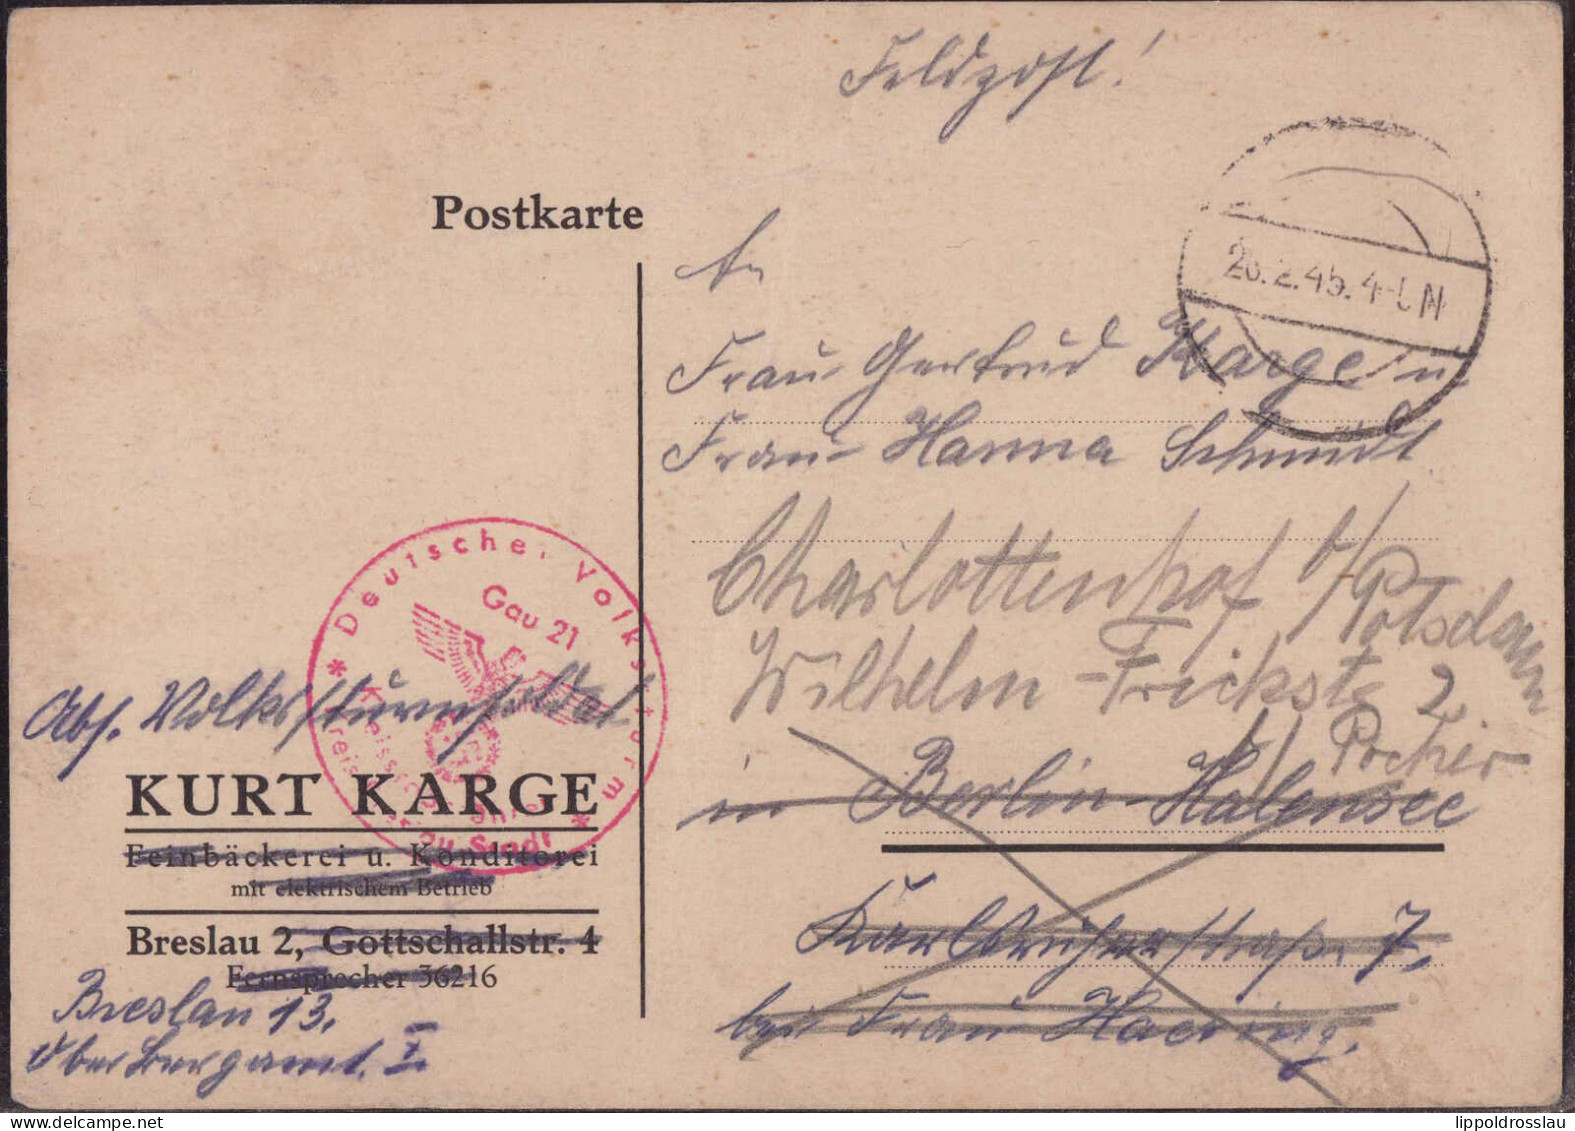 Feldpost!
Postkarte
26.2.45.4-5N
An
Frau Gertrud Karge u.
Frau Hanna Schmidt
Charlottenhof b/Potsdam
Wilhelm-Frickstr 2
b/ Pocher
in Berlin-Halensee
Karlsruherstraße 7,
bei Frau Haering.
* Deutscher Volkssturm *
Gau 21
Breslau Stadt
Abs. Volkssturmsoldat
KURT KARGE
Feinbäckerei u. Konditorei
mit elektrischem Betrieb
Breslau 2, Gottschallstr. 4
Fernsprecher 36216
Breslau 13.
Oberbergamt. I.
lippoldrosslau